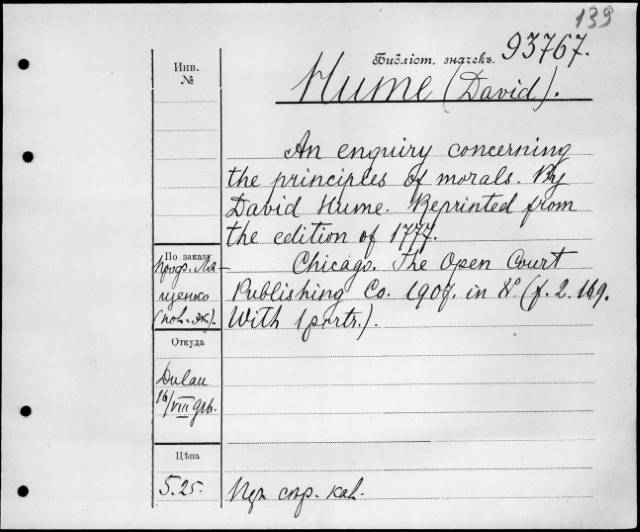 139
Библіот. значекъ. 93767.
Инв.
№
Hume (David).
An enquiry concerning
the principles of morals. By
David Hume. Reprinted from
the edition of 1777.
Chicago. The Open Court
Publishing Co. 1907. in 8°. (f. 2. 169.
With 1 portr.).
По заказу
Проф.
Откуда
Dulau
16/VIII 916.
Цѣна
5.25.